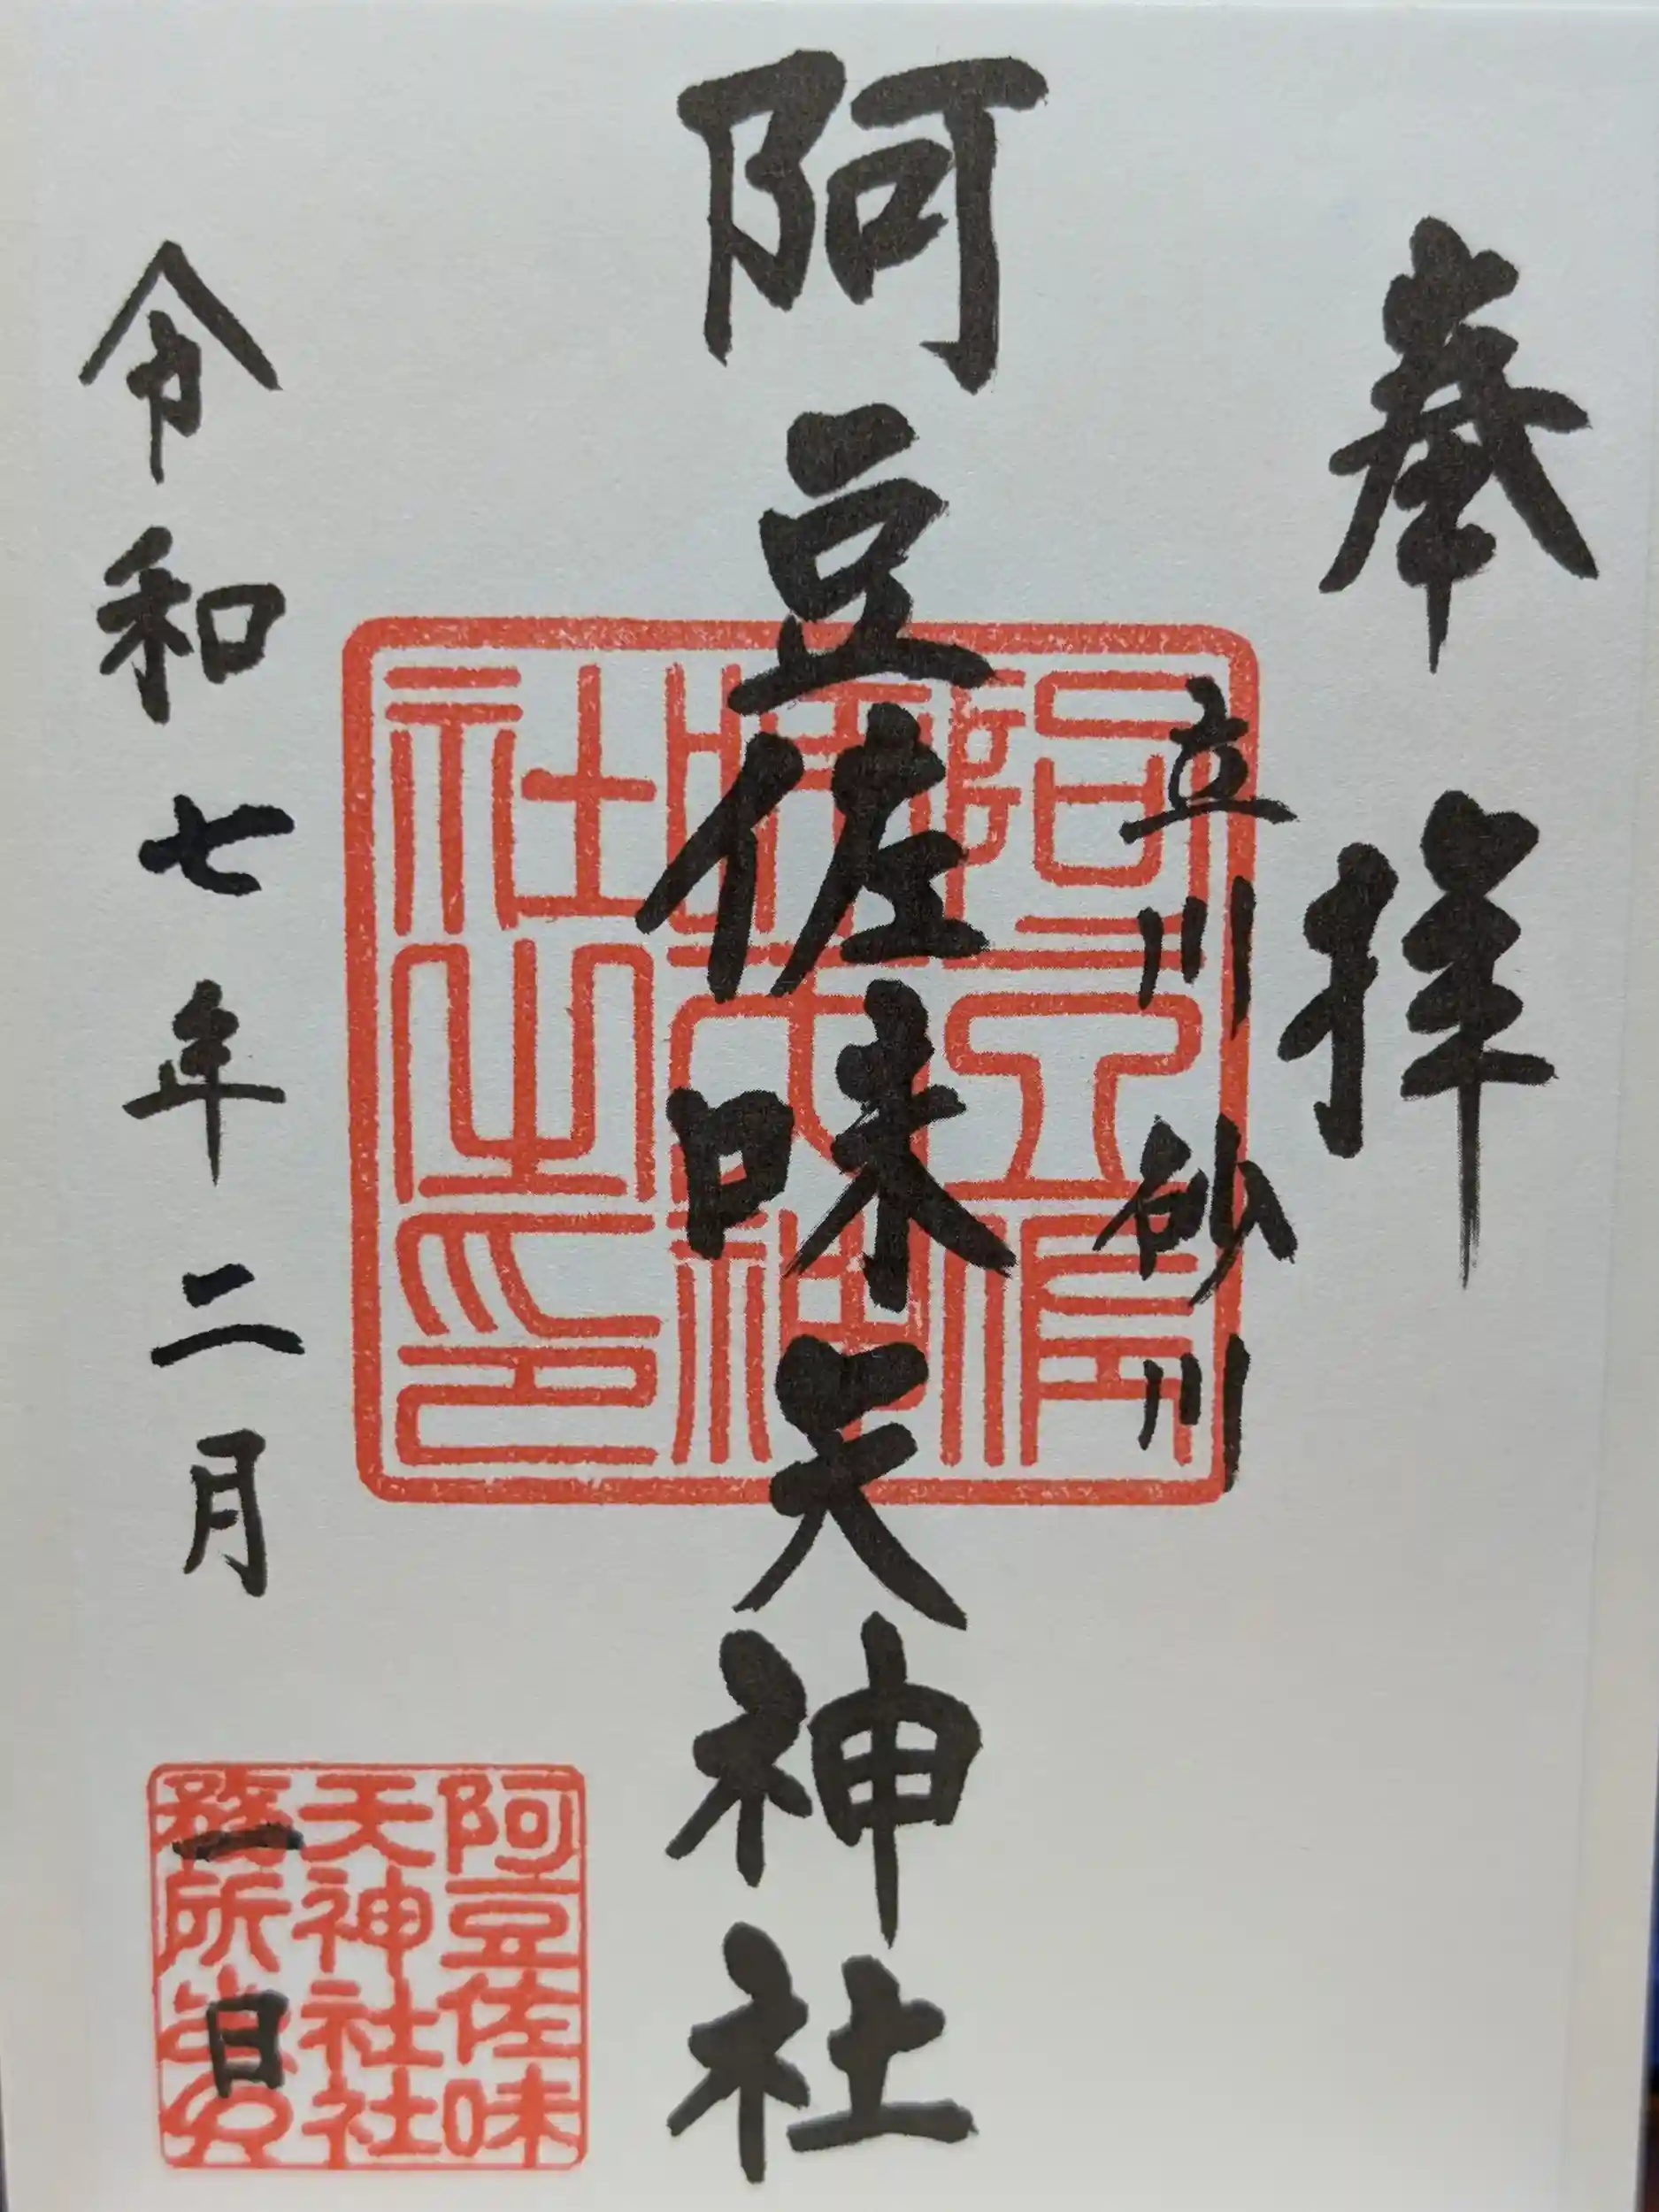 奉拝
立川砂川
阿豆佐味天神社
令和七年二月一日
阿豆佐味
天神社社
務所之印